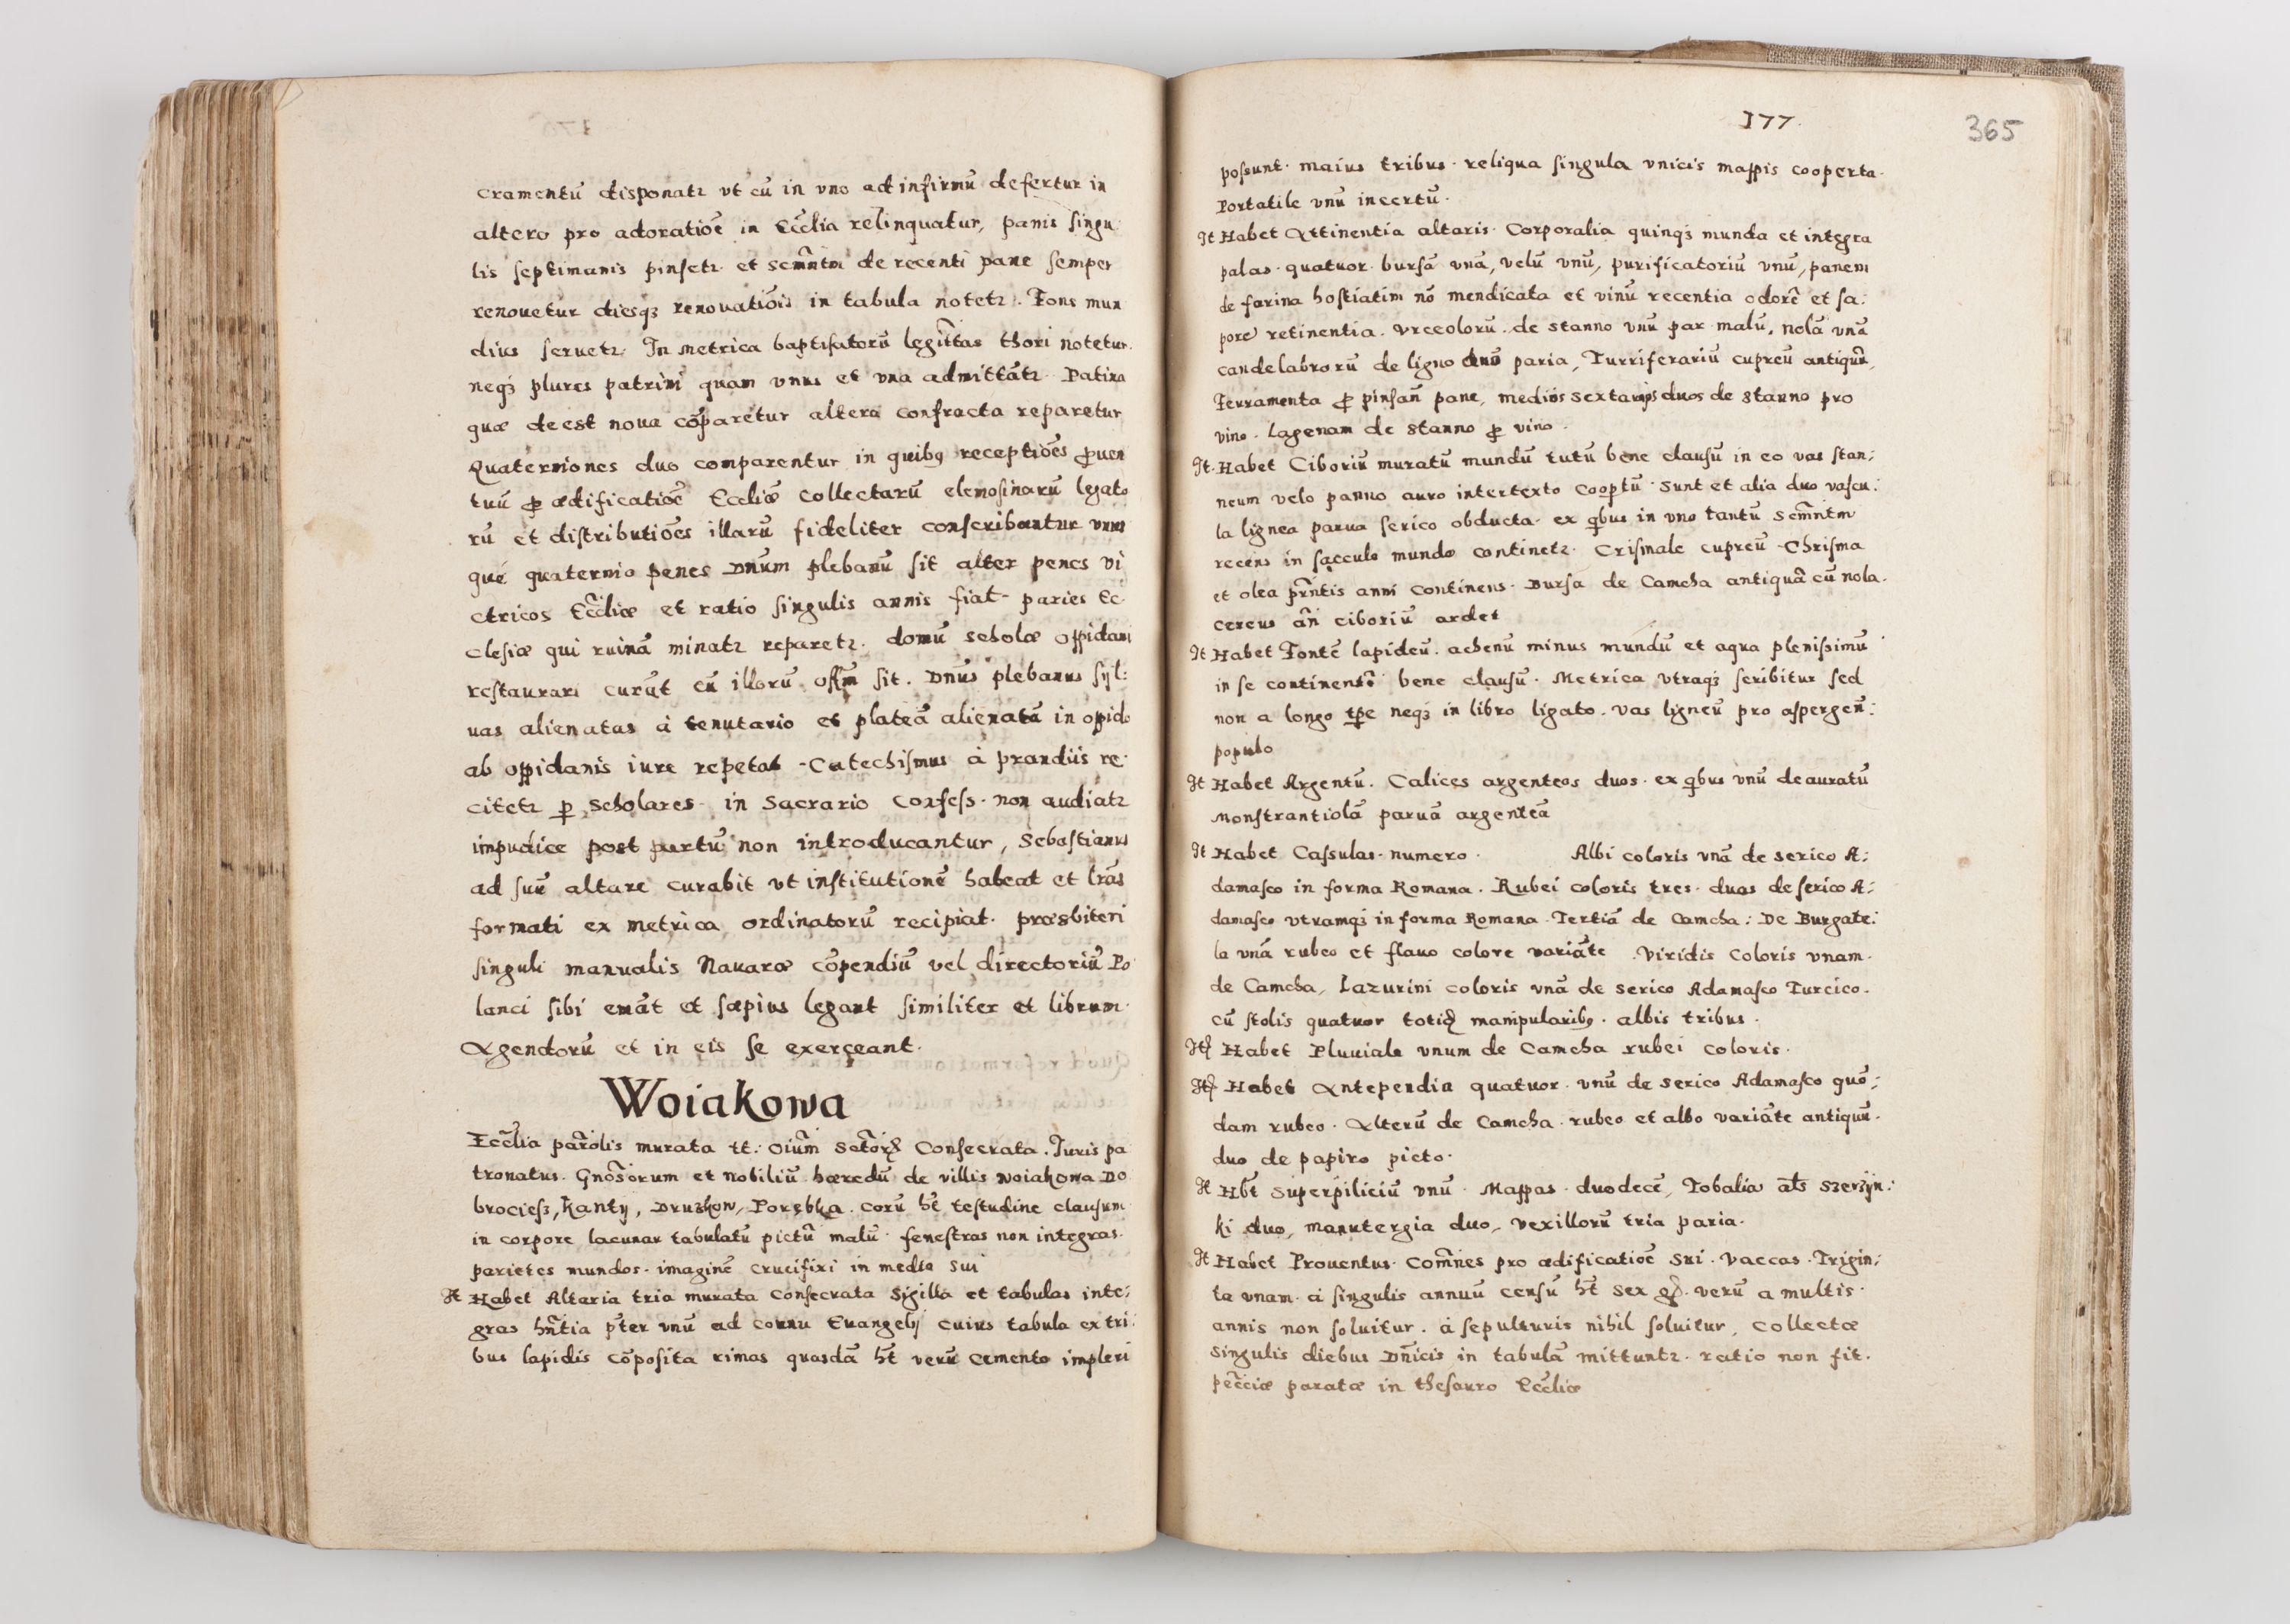 cramentū disponatr vt cū in vno ad infirmū defertur in
altero pro adoratiōe in Eccłia relinquatur, panis singu
lis septimanis pinsetr et scm̄ntm de recenti pane semper
renouetur diesq3 renouatiōis in tabula notetr. Fons mun
dius seruetr. In Metrica baptisatorū legitt̃as thori notetur
neq3 plures patrini quam vnus et vna admittātr. Patina
quæ deest noua cōparetur altera confracta reparetur
Quaterniones duo comparentur in quibꝯ receptiōes ꝓuen
tuū ꝓ ædificatiōe Eccliæ collectarū elemosinarū legato
rū et distributiōes illarū fideliter conscribantur vnus
quę quaternio penes Dnūm plebanū sit alter penes vi
ctricos Eccłiæ et ratio singulis annis fiat paries Ec
clesiæ qui ruinā minatr reparetr. domū scholæ oppidani
restaurari curēt cū illorū offm̄ sit. Dnūs plebanus syl:
uas alienatas à tenutario et plateā alienatā in oppido
ab oppidanis iure repetat. Catechismus à prandiis re
citetr ꝑ scholares. in Sacrario Confess. non audiatr
impudicæ post partū non introducantur, Sebastianus
ad suū altare curabit vt institutionē habeat et lrās
formati ex metrica ordinatorū recipiat. præsbiteri
singuli manualis Nauaræ cōpendiū vel directoriū Po
lanci sibi emāt et sæpius legant similiter et librum
Agendorū et in eis se exerçeant.
Woiakowa
Eccłia parōlis murata tt: Oium̄ Sctōrꝝ Consecrata. Iuris pa
tronatus. Gnōsorum et nobiliū hæredū de villis Woiakowa Do
brociesz, Kanty, Druzkow, Porębka. corū ht̄ testudine clausum
in corpore lacunar tabulatū pictū malū. fenestras non integras.
parietes mundos. imaginē crucifixi in medio sui
It Habet Altaria tria murata Consecrata Sigilla et tabulas inte:
gras hn̄tia pt̄er vnū ad cornu Euangelij cuius tabula ex tri:
bus lapidis cōposita rimas quasdā ht̄ verū cemento impleri
177.
365
possunt. maius tribus. reliqua singula vnicis mappis cooperta.
Portatile vnū incertū.
It Habet Attinentia altaris. Corporalia quinq3 munda et integra
palas quatuor. bursā vnā, velū vnū, purificatoriū vnū, panem
de farina hostiatim nō mendicata et vinū recentia odorē et sa:
porē retinentia. Vrceolorū de stanno vnū par malū, nolā vnā
candelabrorū de ligno duo paria, Turriferariū cupreū antiquū,
Ferramenta ꝓ pinsan̄ pane, medios sextarios duos de stanno pro
vino. Lagenam de stanno ꝓ vino.
It. Habet Ciboriū muratū mundū tutū bene clausū in eo vas stan:
neum velo panno auro intertexto coop̄tū. Sunt et alia duo vascu:
la lignea parua serico obducta. ex qbus in vno tantū scm̄ntm
recens in sacculo mundo continetr. Crismale cupreū Chrisma
et olea prn̄tis anni continens. Bursa de Camcha antiquā cū nola.
cereus an̄ ciboriū ardet
It Habet Fontē lapideū. achenū minus mundū et aqua plenissimū
in se continens bene clausū. Metrica vtraq3 scribitur sed
non a longo tp̄e neq3 in libro ligato. Vas ligneū pro aspergen̄:
populo
It Habet Argentū. Calices argenteos duos. ex qbus vnū deauratū
Monstrantiolā paruā argenteā
It Habet Casulas numero. Albi coloris vnā de serico A:
damasco in forma Romana. Rubei coloris tres. duas de serico A:
damasco vtramq3 in forma Romana. Tertiā de Camcha: De Burgate:
la vnā rubeo et flauo colore variāte. Viridis Coloris vnam.
de Camcha, Lazurini coloris vnā de serico Adamasco Turcico.
cū stolis quatuor totiꝺ manipularibꝯ. albis tribus.
Itꝫ Habet Pluuiale vnum de Camcha rubei coloris.
Itꝫ Habet Antependia quatuor. vnū de serico Adamasco quō:
dam rubeo. Alterū de Camcha. rubeo et albo variāte antiquū.
duo de papiro picto.
It Hbt̄ Superpiliciū vnū. Mappas duodecē, Tobalia alt̄s Szerzyn:
ki duo, manutergia duo, vexillorū tria paria.
It Habet Prouentus. Com̄nes pro ædificatiōe sui. Vaccas. Trigin:
ta vnam. à singulis annuū censū ht̄ sex gꝭ. verū a multis
annis non soluitur. à sepulturis nihil soluitur, Collectæ
Singulis diebus Dn̄icis in tabulā mittuntr. ratio non fit.
pecc̄iæ paratæ in thesauro Eccłiæ